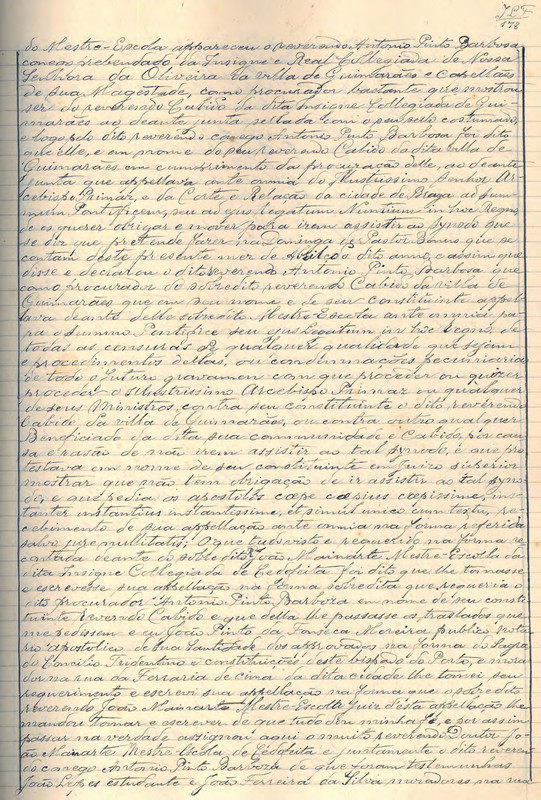 J.L.F
178
do Mestre-Escola appareceu o reverendo Antonio Pinto Barbosa
conego prebendado da Insigne e Real Collegiada de Nossa
Senhora da Oliveira da villa de Guimarães e Capellães
de sua Magestade, como procurador bastante que mostrou
ser do reverendo Cabido da dita Insigne Collegiada de Gui-
marães ao deante junta sellada com o seu sello costumado
e logo pelo dito reverendo conego Antonio Pinto Barbosa foi dito
que elle, e em nome do seu reverendo Cabido da dita villa de
Guimarães em cumprimento da procuração delle, ao deante
junta que appellava ante omnia do Illustrissimo Senhor Ar-
cebispo Primaz, e da Corte e Relação da cidade de Braga ad Sum-
mum Pontificem, seu ad ejus legatum Nuntium in hoc Regno
de os querer obrigar e mover para irem assistir ao Synodo que
se diz que pretende fazer na Dominga Pastor Bonus que se
contam deste presente mez de Abril do dito anno, e assim que
disse e declarou o dito reverendo Antonio Pinto Barbosa que
como procurador do sobredito reverendo Cabido da villa de
Guimarães que em seu nome e de seu constituinte appel-
lava deante delle sobredito Mestre Escola ante omnia pa-
ra o Summo Pontifice seu ejus legatum in hoc regno de
todas as censuras de qualquer qualidade que sejam
e procedimentos dellas, ou condemnações pecuniarias
de todo o futuro gravamen com que proceder ou quizer
proceder o Illustrissimo Arcebispo Primaz ou qualquer
de seus Ministros contra seu constituinte o dito reverendo
Cabido da villa de Guimarães, ou contra outro qualquer
Beneficiado da dita sua communidade e Cabido, por cau-
sa e razão de não irem assistir ao tal synodo, e que pro-
testava em nome de seu constituinte em Juizo superior
mostrar que não tem obrigação de ir assistir ao tal syno-
do, e que pedia os apostolos saepe saepius saepissime, ins-
tanter instantius instantissime, et simul unico contextu, re-
cebimento de sua appellação ante omnia na forma referida
salvo jure nullitatis; O que tudo visto e requerido na forma re-
contada deante do sobredito João Mainarte Mestre-Escolla da
dita Insigne Collegiada de Cedofeita foi dito que lhe tomasse
e escrevesse sua appellação na forma sobredita que requeria o
dito procurador Antonio Pinto Barboza em nome de seu consti-
tuinte Reverendo Cabido e que della lhe passasse os traslados que
me pedissem e eu João Pinto da Fonseca Moreira publico nota-
rio apostolico de sua Santidade dos approvados na forma do Sagra-
do Concilio Tridentino e constituições deste bispado do Porto, e mora-
dor na rua da Ferraria de cima da dita cidade lhe tomei seu
requerimento e escrevi sua appellação na forma que o sobredito
reverendo João Mainarte Mestre-Escolla Juiz desta appellação lhe
mandou tomar e escrever de que tudo dou minha fé, e por assim
passar na verdade assignou aqui o muito reverendo Doutor Jo-
ão Mainarte Mestre Escola de Cedofeita e juntamente o dito reveren-
do conego Antonio Pinto Barboza de que foram testemunhas
João Lopes estudante e João Ferreira da Silva moradores na rua